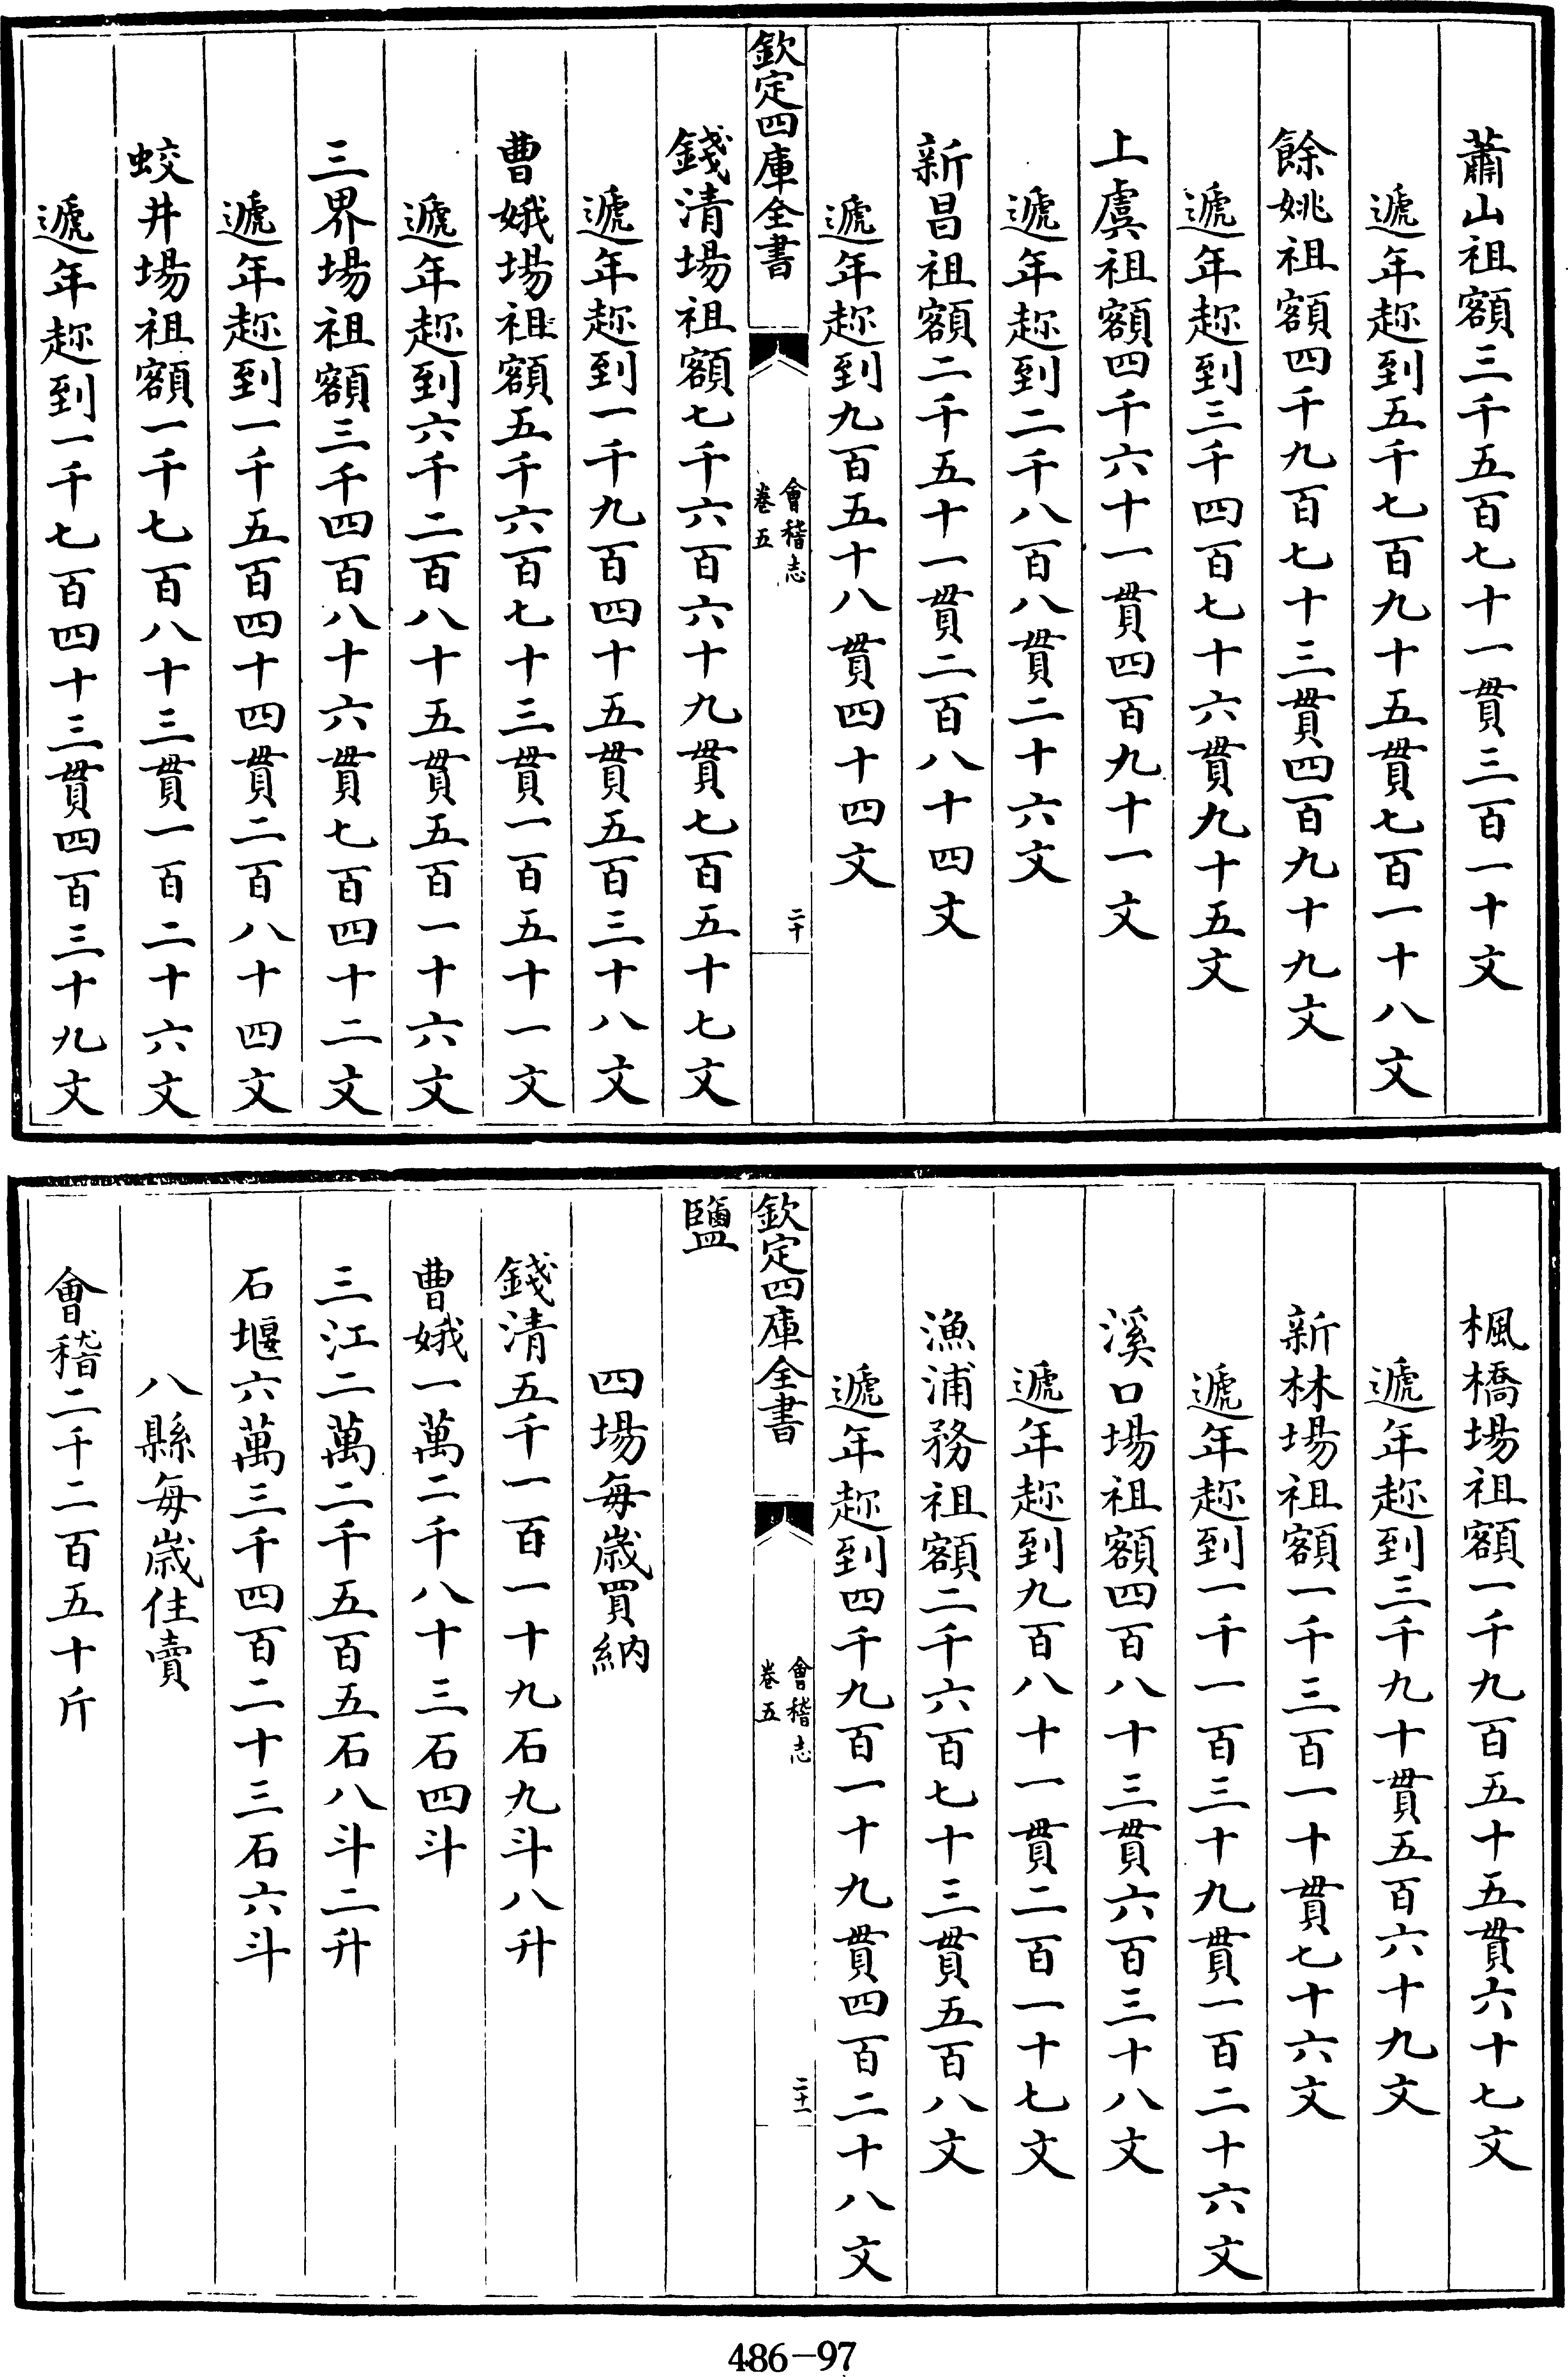 蕭山祖額三千五百七十一貫三百一十文
遞年趂到五千七百九十五貫七百一十八文
餘姚祖額四千九百七十三貫四百九十九文
遞年趂到三千四百七十六貫九十五文
上虞祖額四千六十一貫四百九十一文
遞年趂到二千八百八貫二十六文
新昌祖額二千五十一貫二百八十四文
遞年趂到九百五十八貫四十四文
欽定四庫全書
會稽志
卷五
二十
錢清場祖額七千六百六十九貫七百五十七文
遞年趂到一千九百四十五貫五百三十八文
曹娥場祖額五千六百七十三貫一百五十一文
遞年趂到六千二百八十五貫五百一十六文
三界場祖額三千四百八十六貫七百四十二文
遞年趂到一千五百四十四貫二百八十四文
蛟井場祖額一千七百八十三貫一百二十六文
遞年趂到一千七百四十三貫四百三十九文
楓橋場祖額一千九百五十五貫六十七文
遞年趂到三千九十貫五百六十九文
新林場祖額一千三百一十貫七十六文
遞年趂到一千一百三十九貫一百二十六文
溪口場祖額四百八十三貫六百三十八文
遞年趂到九百八十一貫二百一十七文
漁浦務祖額二千六百七十三貫五百八文
遞年趂到四千九百一十九貫四百二十八文
欽定四庫全書
會稽志
卷五
二十一
鹽
四場每歲買納
錢清五千一百一十九石九斗八升
曹娥一萬二千八十三石四斗
三江二萬二千五百五石八斗二升
石堰六萬三千四百二十三石六斗
八縣每歲住賣
會稽二千二百五十斤
486-97